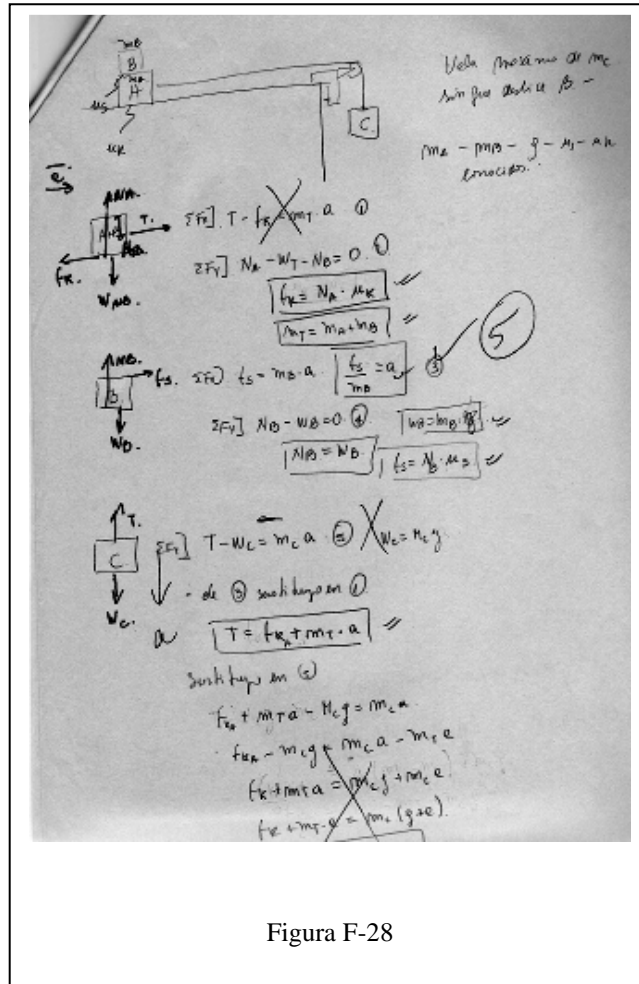 mB
B
mA
A
μs
μk
C
máximo de mc
sin que deslice B. -
mA - mB - g - μs - μk
conocidos.
NA.
A+B
T.
fK.
NB.
WAB.
ΣFx] T - fK = mT . a ①
ΣFy] NA - WT - NB = 0. ②
fK = NA . μK
mT = mA + mB
5
NB.
B
fs.
WB.
ΣFx] fs = mB . a fs/mB = a ③
ΣFy] NB - WB = 0. ④ WB = mB . g
NB = WB fs = NB . μs
T.
C
WC.
ΣFy] T - WC = mC a ⑤ WC = MC g
a
- de ③ sustituyo en ①
T = fKA + mT . a
sustituyo en ⑤
FKA + mT a - MC g = mC a
fK + mT a = mC g + mC a
Figura F-28